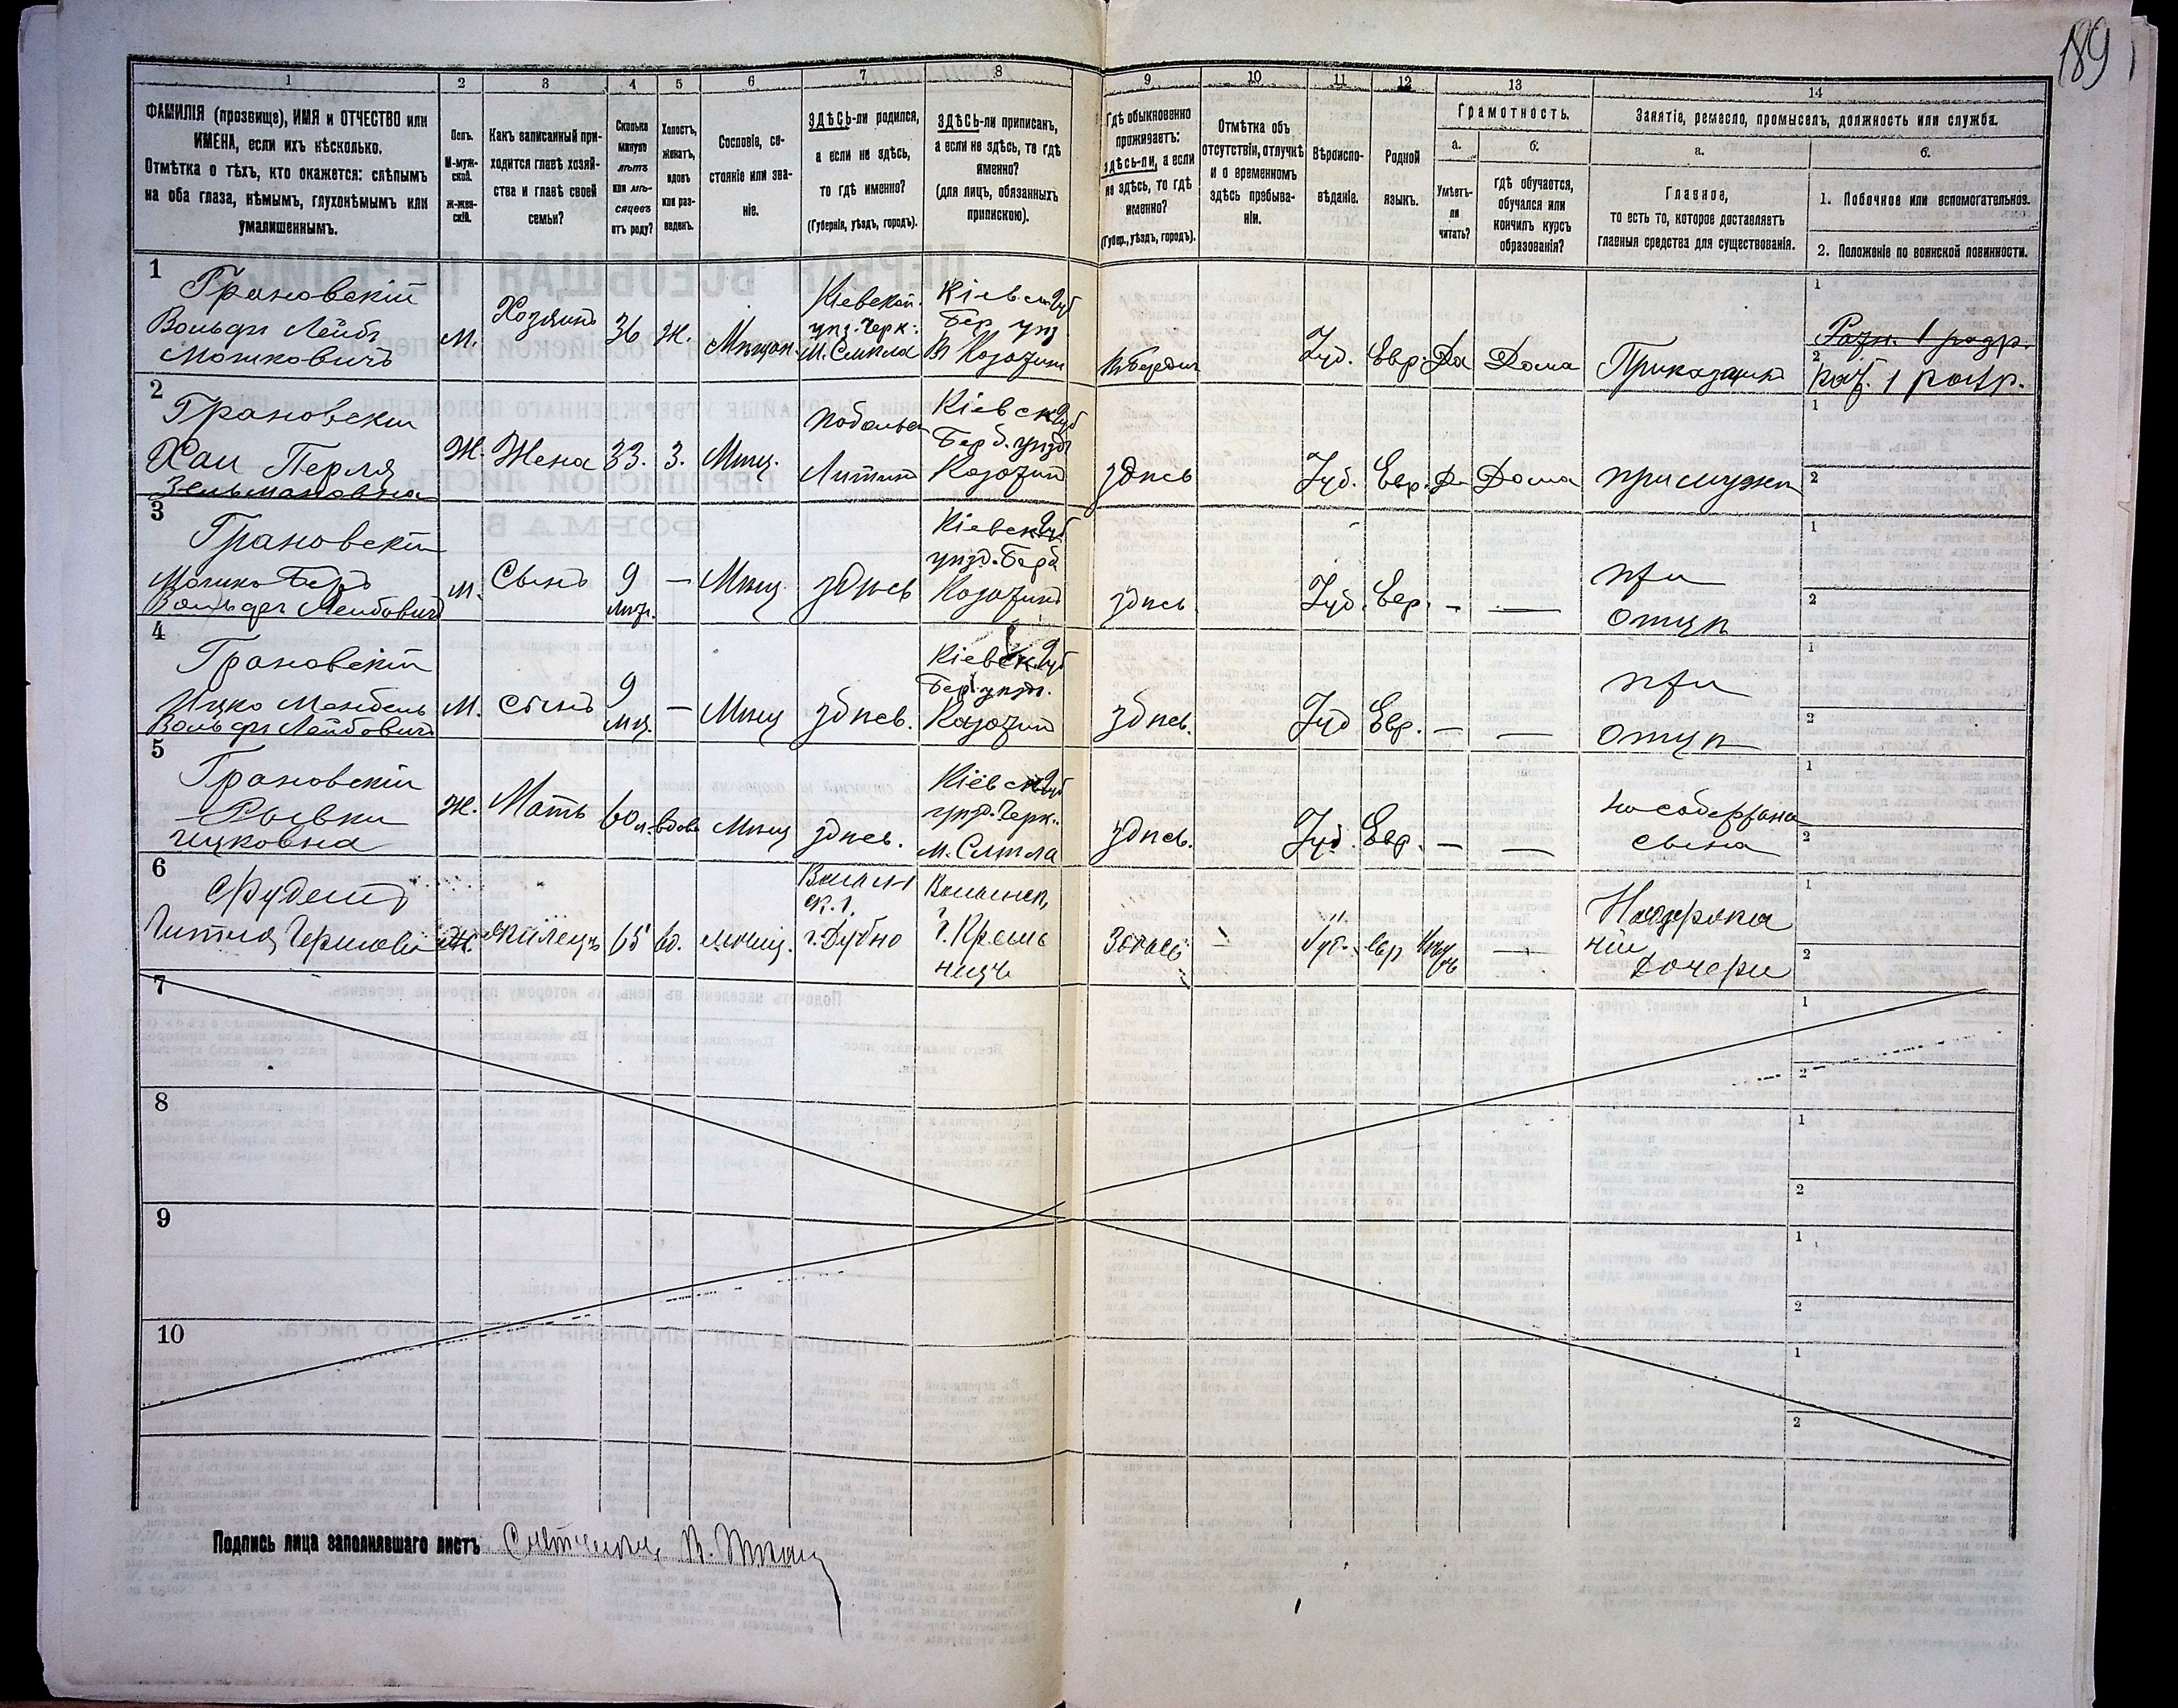 189
1 2 3 4 5 6 7 8 9 10 11 12 13 14
ФАМИЛІЯ (прозвище), ИМЯ и ОТЧЕСТВО или
ИМЕНА, если ихъ нѣсколько.
Отмѣтка о тѣхъ, кто окажется: слѣпымъ
на оба глаза, нѣмымъ, глухонѣмымъ или
умалишеннымъ.
Полъ.
М-муж-
ской.
Ж-жен-
скій.
Какъ записанный при-
ходится главѣ хозяй-
ства и главѣ своей
семьи?
Сколько
минуло
лѣтъ
или мѣ-
сяцевъ
отъ роду?
Холостъ,
женатъ,
вдовъ
или раз-
веденъ.
Сословіе, со-
стояніе или зва-
ніе.
ЗДѢСЬ-ли родился,
а если не здѣсь,
то гдѣ именно?
(Губернія, уѣздъ, городъ).
ЗДѢСЬ-ли приписанъ,
а если не здѣсь, то гдѣ
именно?
(для лицъ, обязанныхъ
припискою).
Гдѣ обыкновенно
проживаетъ:
здѣсь-ли, а если
не здѣсь, то гдѣ
именно?
(Губер., уѣздъ, городъ).
Отмѣтка объ
отсутствіи, отлучкѣ
и о временномъ
здѣсь пребыва-
ніи.
Вѣроиспо-
вѣданіе.
Родной
языкъ.
Грамотность.
а.
Умѣетъ-
ли
читать?
б.
гдѣ обучается,
обучался или
кончилъ курсъ
образованія?
Занятіе, ремесло, промыселъ, должность или служба.
а.
Главное,
то есть то, которое доставляетъ
главныя средства для существованія.
б.
1. Побочное или вспомогательное.
2. Положеніе по воинской повинности.
1
Грановскій
Вольфъ Лейбъ
Мошковичъ
М.
Хозяинъ
36
Ж.
Мѣщан.
Кіевской
уѣз. Черк.
М. Смѣла
Кіевск. Губ
Бер. уѣз
Казатин
Іуд.
Евр.
Да
Дома
Приказчикъ
1
2
Рат. 1 разр.
2
Грановскій
Хаи Перля
Зельмановна
Ж.
Жена
33.
З.
Мѣщ.
Подольск
Литинъ
Кіевск Губ
Берд. уѣзд
Казатин
здѣсь
Іуд.
Евр.
Да
Дома
1
2
3
Грановскій
Мошко Беръ
Вольфъ Лейбовичъ
М.
Сынъ
9
мѣс.
—
Мѣщ.
здѣсь
Кіевск Губ
уѣзд. Берд
Казатинъ
здѣсь
Іуд.
Евр.
—
—
при
отцѣ
1
2
4
Грановскій
Ицко Мендель
Вольфъ Лейбовичъ
М.
Сынъ
9
мѣс.
—
Мѣщ
здѣсь.
Кіевск. Губ
Бер. уѣзд.
Казатин
здѣсь.
Іуд
Евр.
—
—
при
отцѣ
1
2
5
Грановскій
Рывка
Ицковна
Ж.
Мать
60 л.
вдова
Мѣщ
здѣсь.
Кіевск Губ
уѣзд. Черк.
м. Смѣла
здѣсь.
Іуд.
Евр.
—
—
на содержан
сына
1
2
6
Ж.
65
в.
мѣщ.
Волын
ск. г.
г. Дубно
Волынск,
г. Креме
нецъ
здѣсь
—
Іуд.
евр
—
На
дочери
1
2
7
1
2
8
1
2
9
1
2
10
1
2
Подпись лица заполнявшаго листъ Счётчикъ